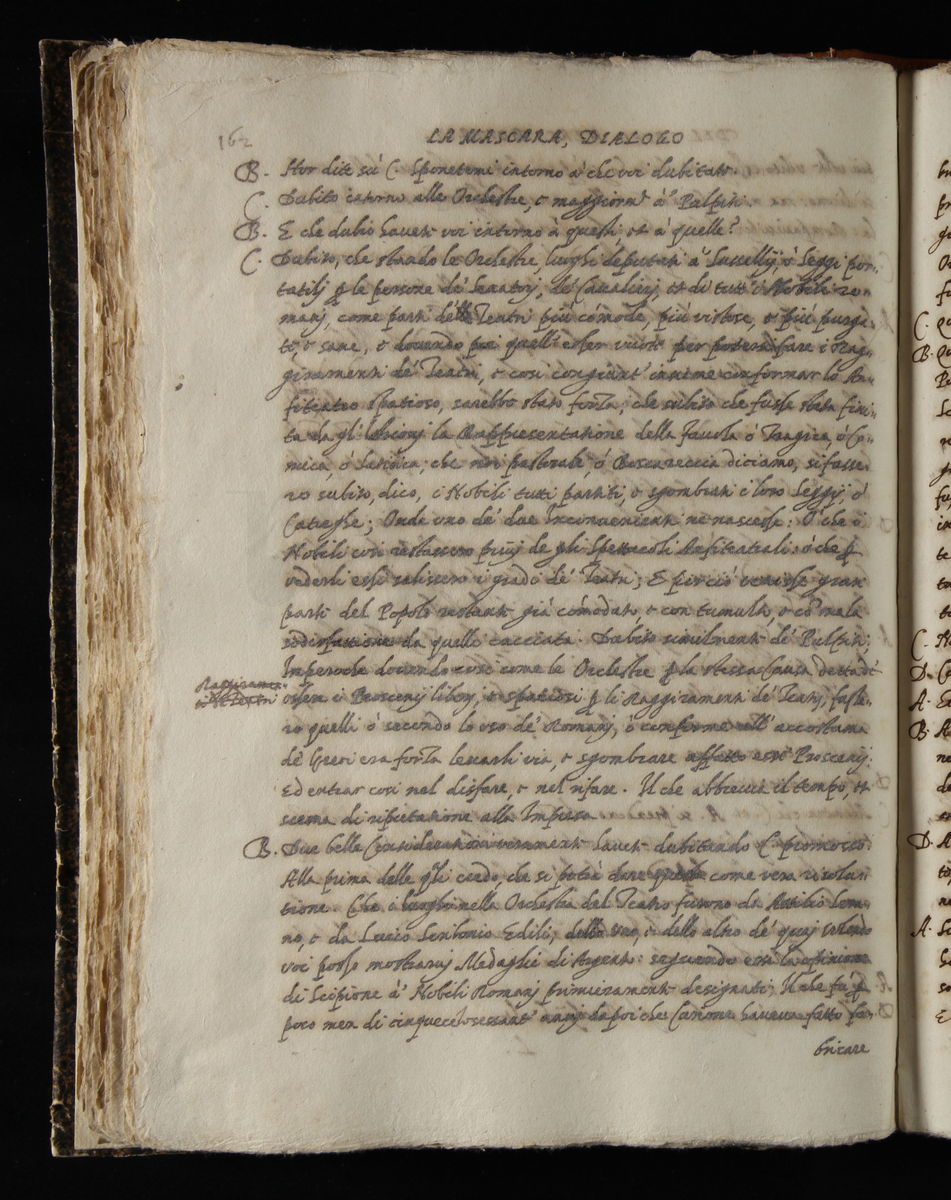 162
LA MASCARA, DIALOGO
B. Hor dite sù C. Sponetemi intorno à che voi dubitate.
C. Dubito intorno alle Orchestre, e maggiorm.te à Pulpiti.
B. E che dubio havete voi intorno à questi, et à quelle?
C. Dubito, che stando le Orchestre, luoghi deputati à Sussellij, ò Seggi por-
tatili p le persone de' Senatorj, de' Cavalieri, et di tutti i Nobili Ro-
manj, come parti delli Teatri più cómode, più vistose, e più purga-
te, e sane, e dovendo poi quelli esser vicoti per potersi fare i Rag-
giramenti de' Teatri, e così congiunti insieme conformar lo An-
fiteatro spatioso, sarebbe stato forza; che subito che fusse stata fini-
ta da gli Istrionj la Rappresentatione della Favola ò Tragica, ò Co-
mica, ò Satirica; che noi pastorale, ò Boscareccia diciamo, si fusse-
ro subito, dico, i Nobili tutti partiti, e sgombrati i loro Seggij, ò
Catreghe; Onde uno de' due Inconvenienti ne nascesse: O' che i
Nobili così restassero privi de gli Spettacoli Anfiteatrali: ò che p
vederli essi salissero i gradi de' Teatri; E perciò venisse gran
parte del Popolo restante già cómodato, e con tumulto, e có mala
sodisfattione da quelle cacciata. Dubito similmente de' Pulpiti;
Imperoche dovendo così come le Orchestre p la stessa Causa detta di
Raggiramen-
ti de Teatri
essere i Proscenij liberi, e spatiosi p li Raggiramenti de' Teatrj, fusse-
ro quelli ò secondo lo uso de' Romanj, ò conforme all' accostuma
de' Greci era forza levarli via, e sgombrare affatto essi Proscenij.
Ed entrar così nel disfare, e nel rifare. Il che abbrevia il tempo, et
scema di riputatione alla Impresa.
B. Due belle Considerationi veramente havete dubitando C. promosso.
Alla prima delle q.li credo, che si potria dare questa come vera risolu-
tione. Che i luoghi nella Orchestra del Teatro furono da Attilio Sera-
no, e da Lucio Scribonio Edili, dello uno, e dello altro de' quaj volendo
voi posso mostrarvj Medaglie di Argento: seguendo essi la opinione
di Scipione à' Nobili Romanj primieramente designati; Il che fù p
poco men di cinquecé͂tosessant' annj dapoi che Carione haveva fatto fa-
bricare